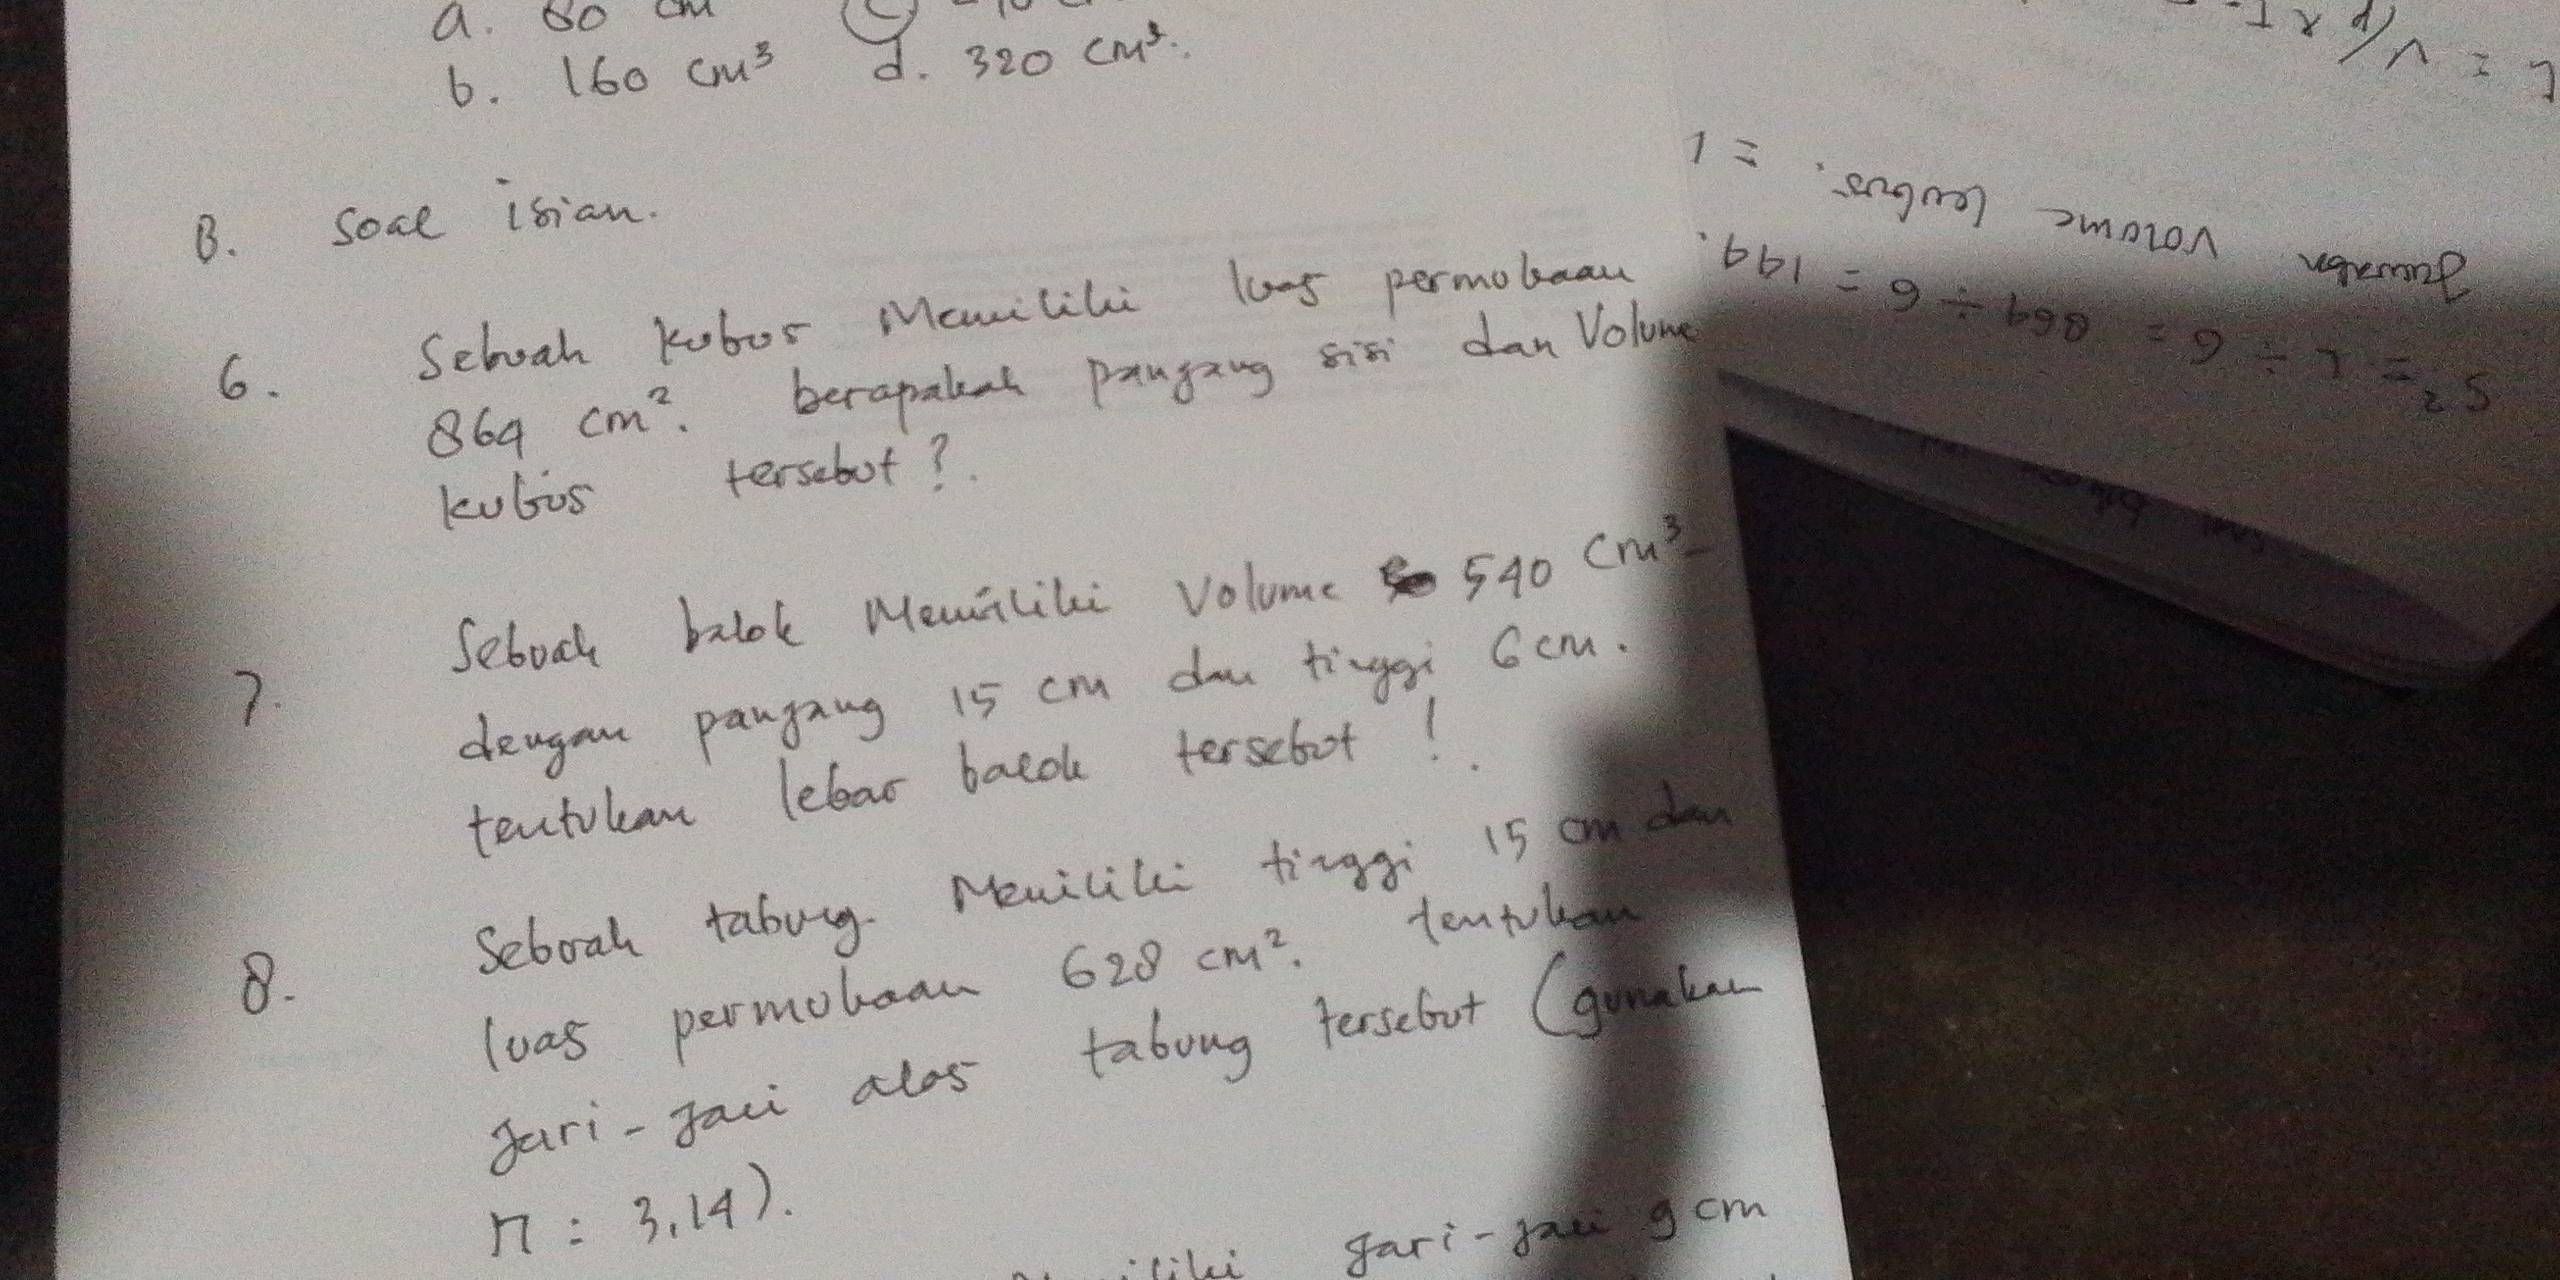 a. 80 cm
b. 160 cm³ d. 320 cm³.
B. Soal isian.
6. Sebuah kubus Memiliki luas permukaan
864 cm². berapakah panjang sisi dan Volume
kubus tersebut?
7. Sebuah balok Memiliki Volume 540 cm³
dengan panjang 15 cm dan tinggi 6 cm.
tentukan lebar balok tersebut!
8. Sebuah tabung Memiliki tinggi 15 cm dan
luas permukaan 628 cm². tentukan
jari-jari alas tabung tersebut (gunakan
π = 3,14).
jari-jari 9 cm
S² = L ÷ 6 = 864 ÷ 6 = 144.
Jawaban Volume kubus.